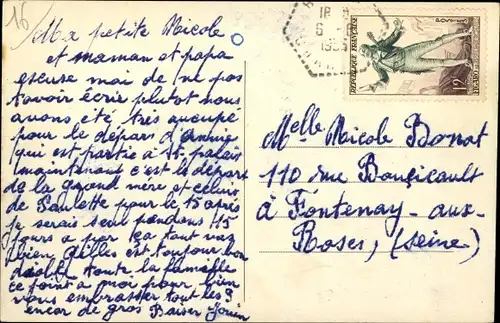 16
Ma petite Nicole
et maman et papa
escuse moi de ne pas
t'avoir écrie plutot nous
avons été très occupé
pour le départ d'Annie
qui est partie a St palais
maintenant c'est le départ
de la grand mère et celuis
de Paulette pour le 15 après
je serais seul pendans 15
jours a par ça tout vas
bien Gilles est toujour bon
diable toute la famille
ce joint a moi pour bien
vous embrasser tout les 3
encor de gros Baiser
REPUBLIQUE FRANÇAISE
12F
Melle Nicole Donat
110 rue Bouçicault
à Fontenay-aux-
Roses, (Seine)